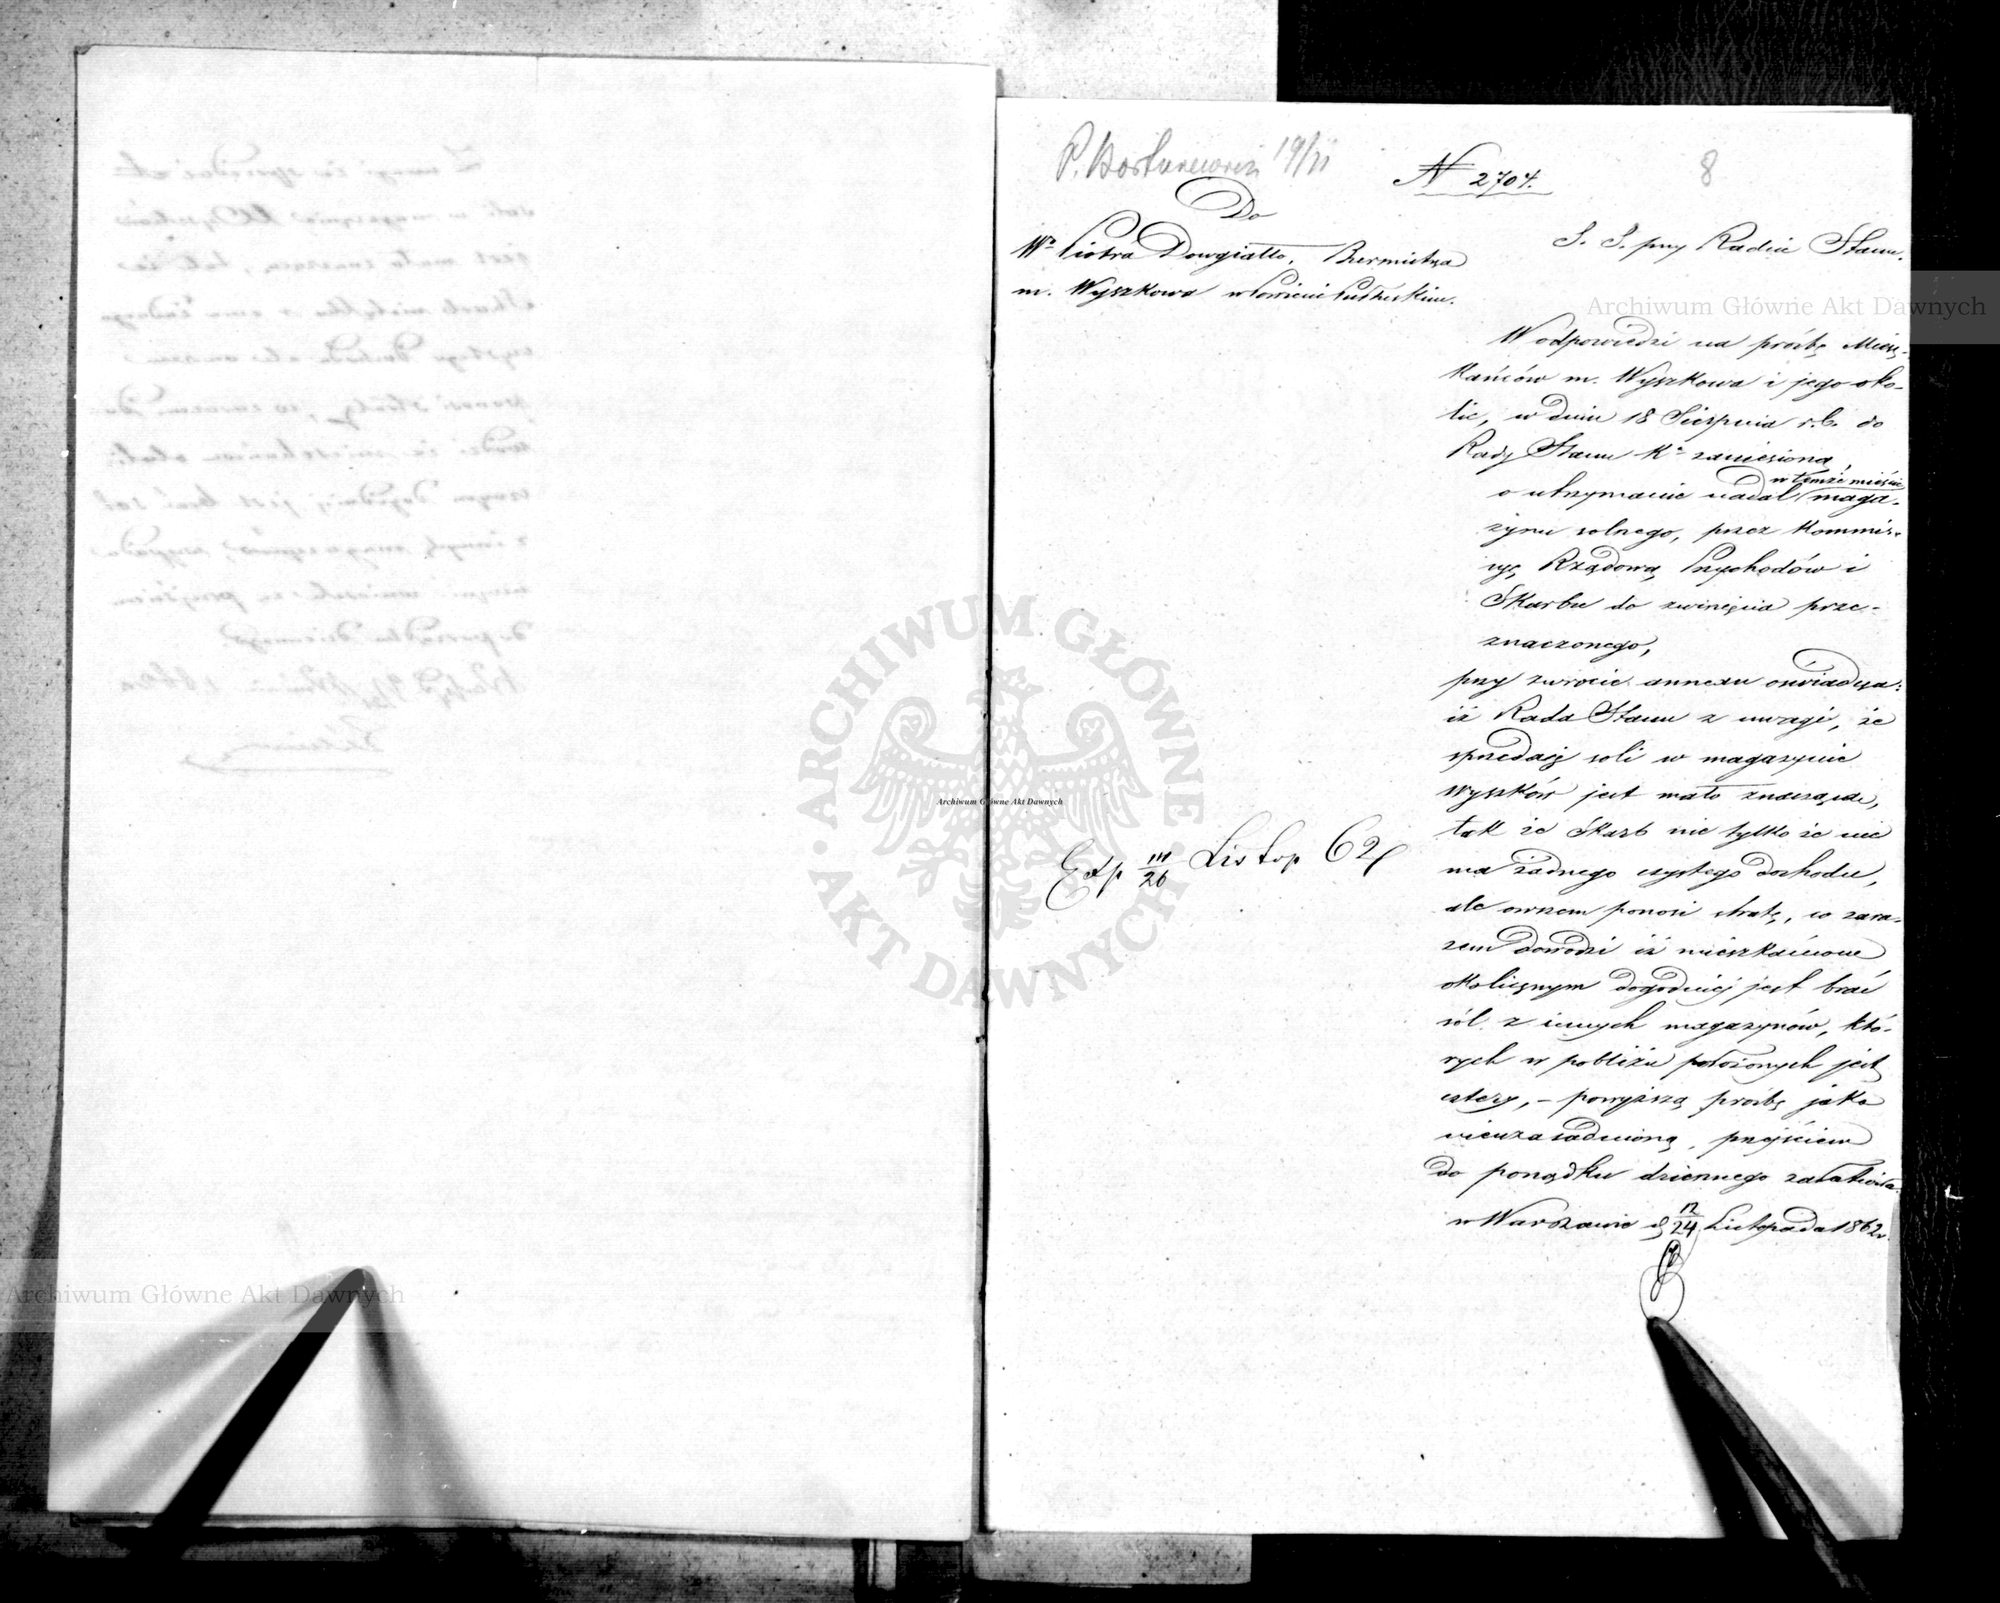 19/11
№ 2704.
8
Do
Wo Piotra Dowgiałło, Burmistrza
m. Wyszkowa w Powiecie Pułtuskim.
S. S. przy Radzie Stanu.
W odpowiedzi na prośbę Miesz-
kańców m. Wyszkowa i jego oko-
lic, w dniu 18 Sierpnia r.b. do
Rady Stanu Ka zaniesioną,
w temże mieście
o utrzymanie nadal maga-
zynu solnego, przez Kommis-
syę Rządową Przychodów i
Skarbu do zwinięcia prze-
znaczonego,
przy zwrocie annexu oświadcza:
iż Rada Stanu z uwagi, że
sprzedaż soli w magazynie
Wyszków jest mało znaczącą,
tak że Skarb nie tylko że nie
ma żadnego czystego dochodu,
ale owszem ponosi stratę, co zara-
zem dowodzi iż mieszkańcom
okolicznym dogodniej jest brać
sól z innych magazynów, któ-
rych w pobliżu położonych jest
cztery, – powyższą prośbę jako
nieuzasadnioną, przejściem
do porządku dziennego załatwiła.
w Warszawie d 12/24 Listopada 1862 r.
Exp 14/26 Listop 62
Archiwum Główne Akt Dawnych
ARCHIWUM GŁÓWNE AKT DAWNYCH
Archiwum Główne Akt Dawnych
Archiwum Główne Akt Dawnych